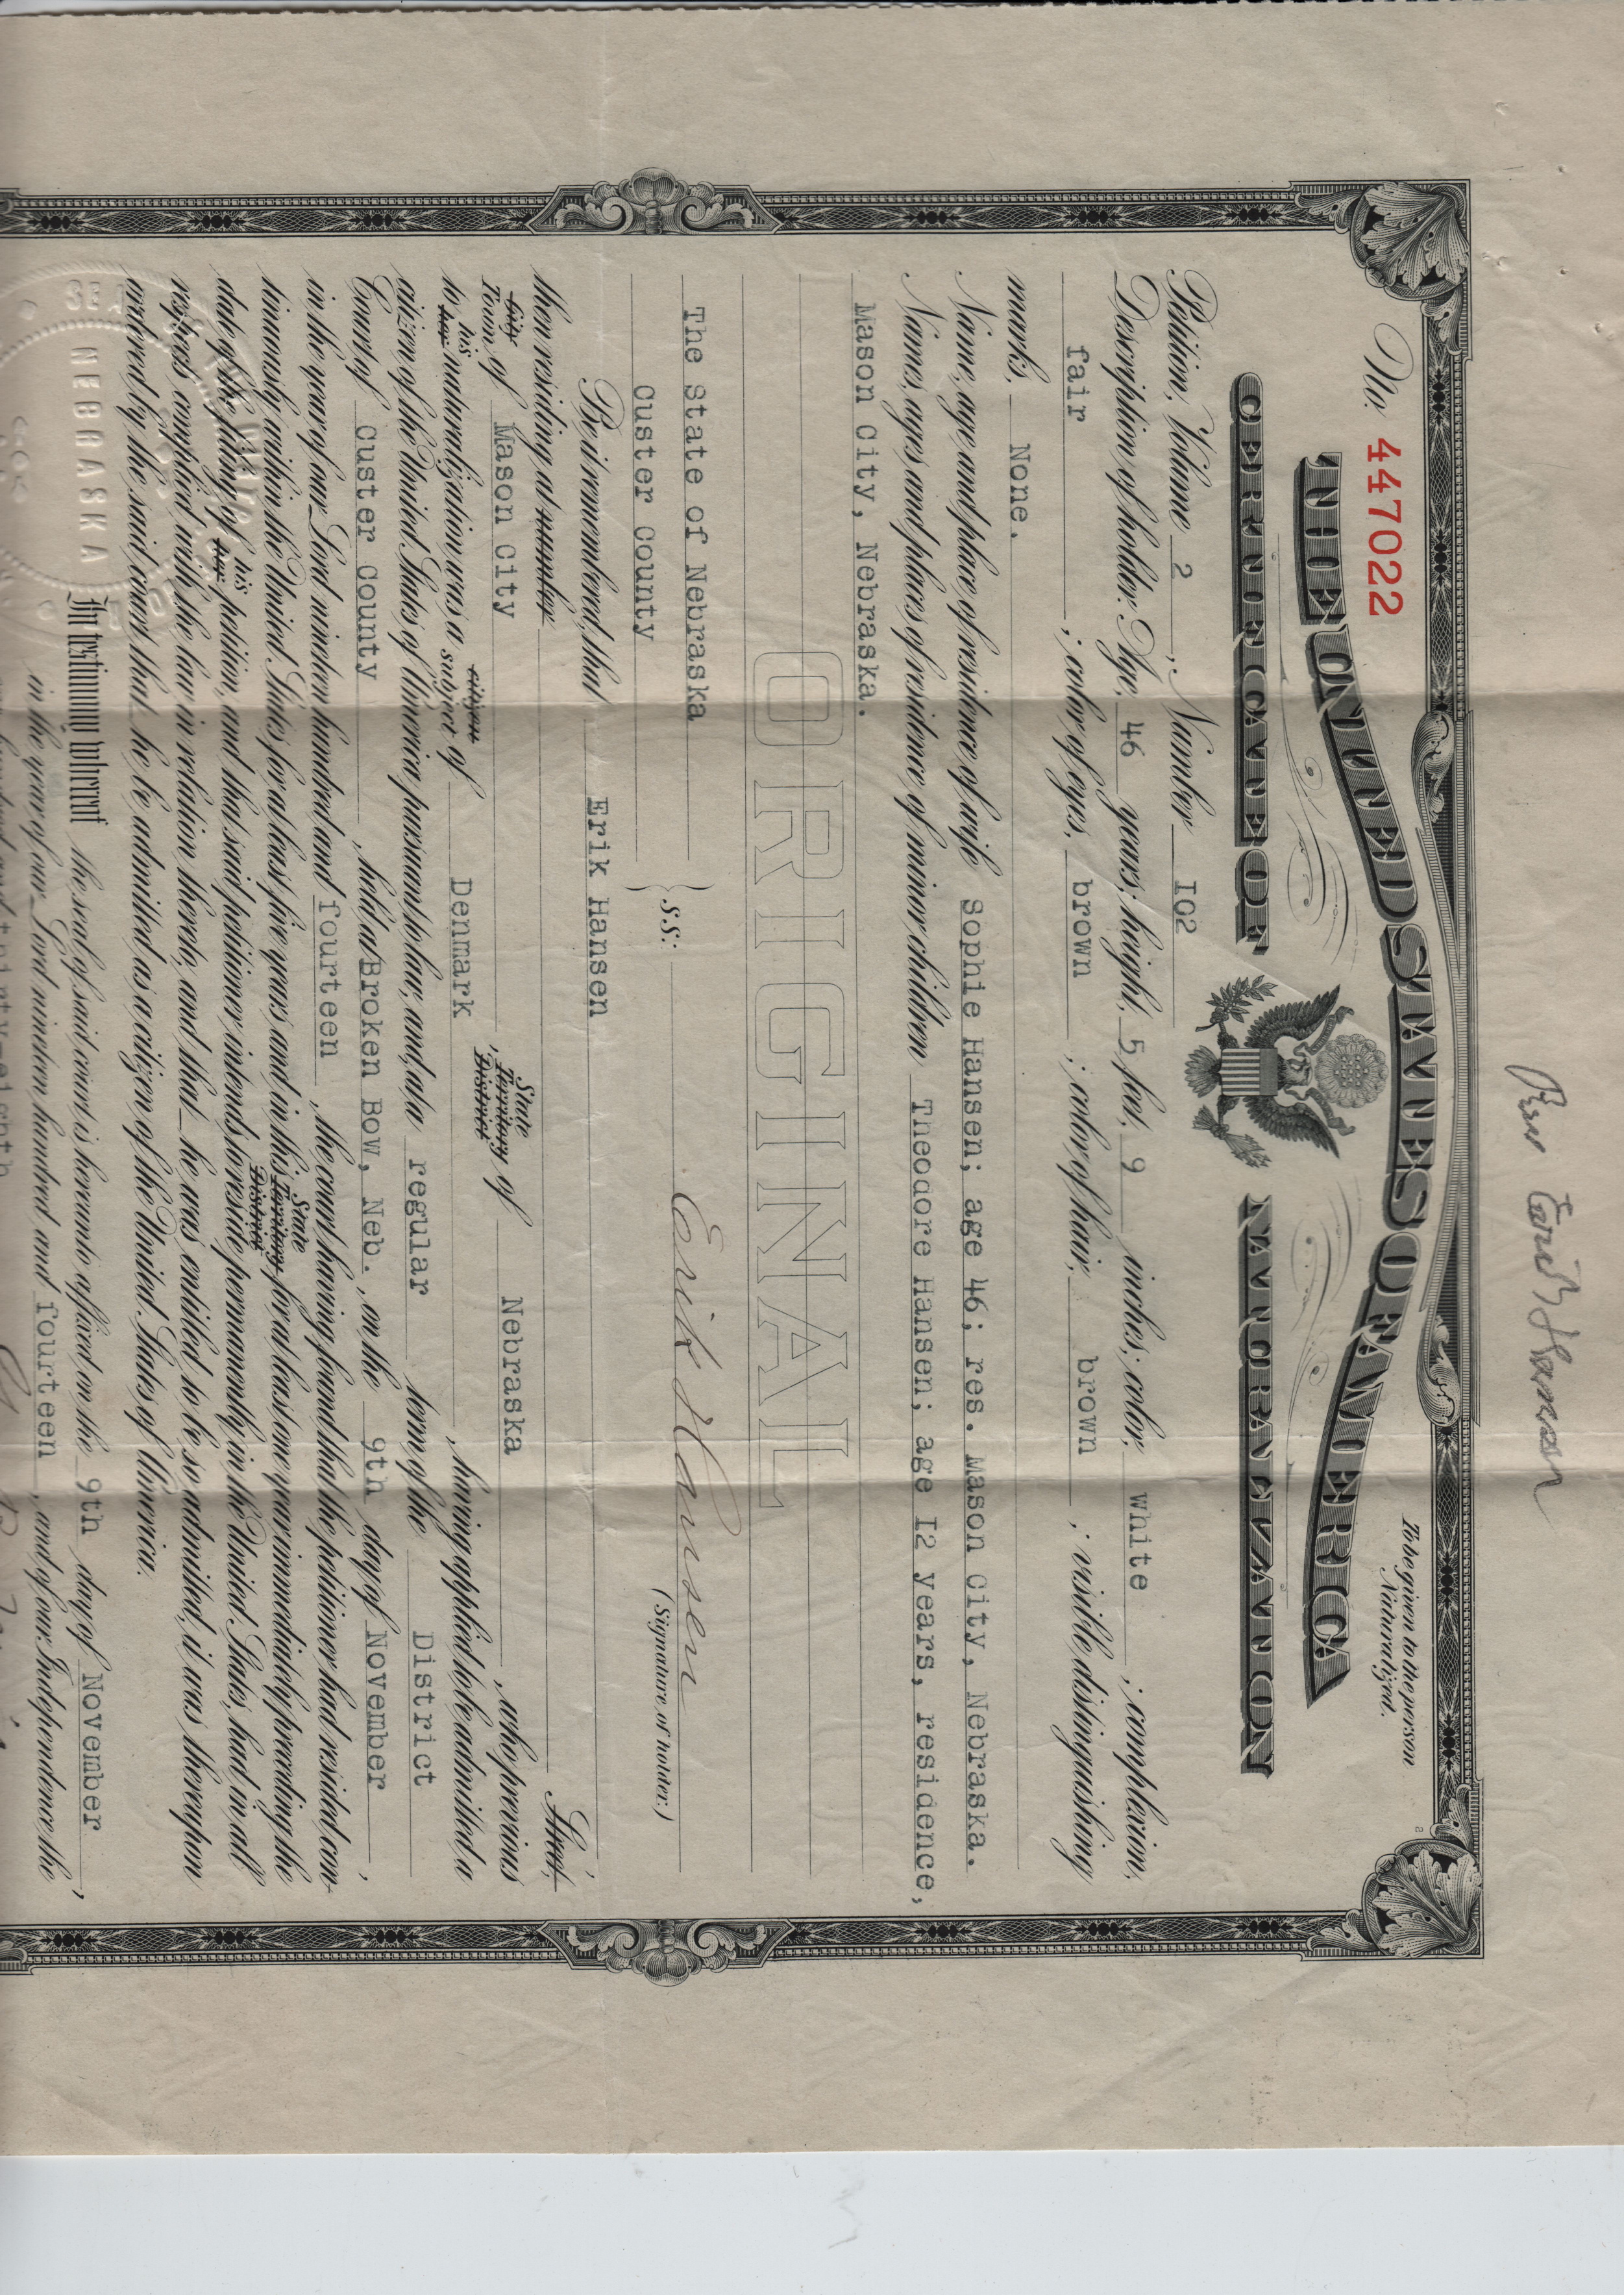 Erik Hansen
No. 447022
To be given to the person
Naturalized.
THE UNITED STATES OF AMERICA
CERTIFICATE OF NATURALIZATION
Petition, Volume 2; Number I02
Description of holder: Age, 46 years; height, 5 feet, 9 inches; color, white; complexion,
fair; color of eyes, brown; color of hair, brown; visible distinguishing
marks, None.
Name, age and place of residence of wife Sophie Hansen; age 46; res. Mason City, Nebraska.
Names, ages and places of residence of minor children Theodore Hansen; age I2 years, residence,
Mason City, Nebraska.
ORIGINAL
The State of Nebraska
Custer County } s.s:
Erik Hansen
(Signature of holder.)
Be it remembered, that Erik Hansen,
then residing at number Street,
City Town of Mason City, State Territory District of Nebraska, who previous
to his her naturalization was a citizen subject of Denmark, having applied to be admitted a
citizen of the United States of America, pursuant to law, and, at a regular term of the District
Court of Custer County, held at Broken Bow, Neb., on the 9th day of November,
in the year of our Lord nineteen hundred and fourteen, the court having found that the petitioner had resided con-
tinuously within the United States for at least five years and in this State Territory District for at least one year immediately preceding the
date of the filing of his her petition, and that said petitioner intends to reside permanently in the United States, had in all
respects complied with the law in relation thereto, and that he was entitled to be so admitted, it was thereupon
ordered by the said court that he be admitted as a citizen of the United States of America.
In testimony whereof the seal of said court is hereunto affixed on the 9th day of November,
in the year of our Lord nineteen hundred and fourteen, and of our Independence the
SEAL
NEBRASKA